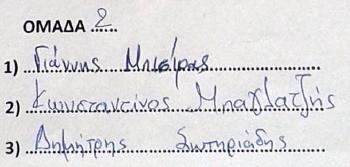 ΟΜΑΔΑ 2
1) Γιάννης Μπσίρας
2) Κωνσταντίνος Μπαγλατζής
3) Δημήτρης Σωτηριάδης